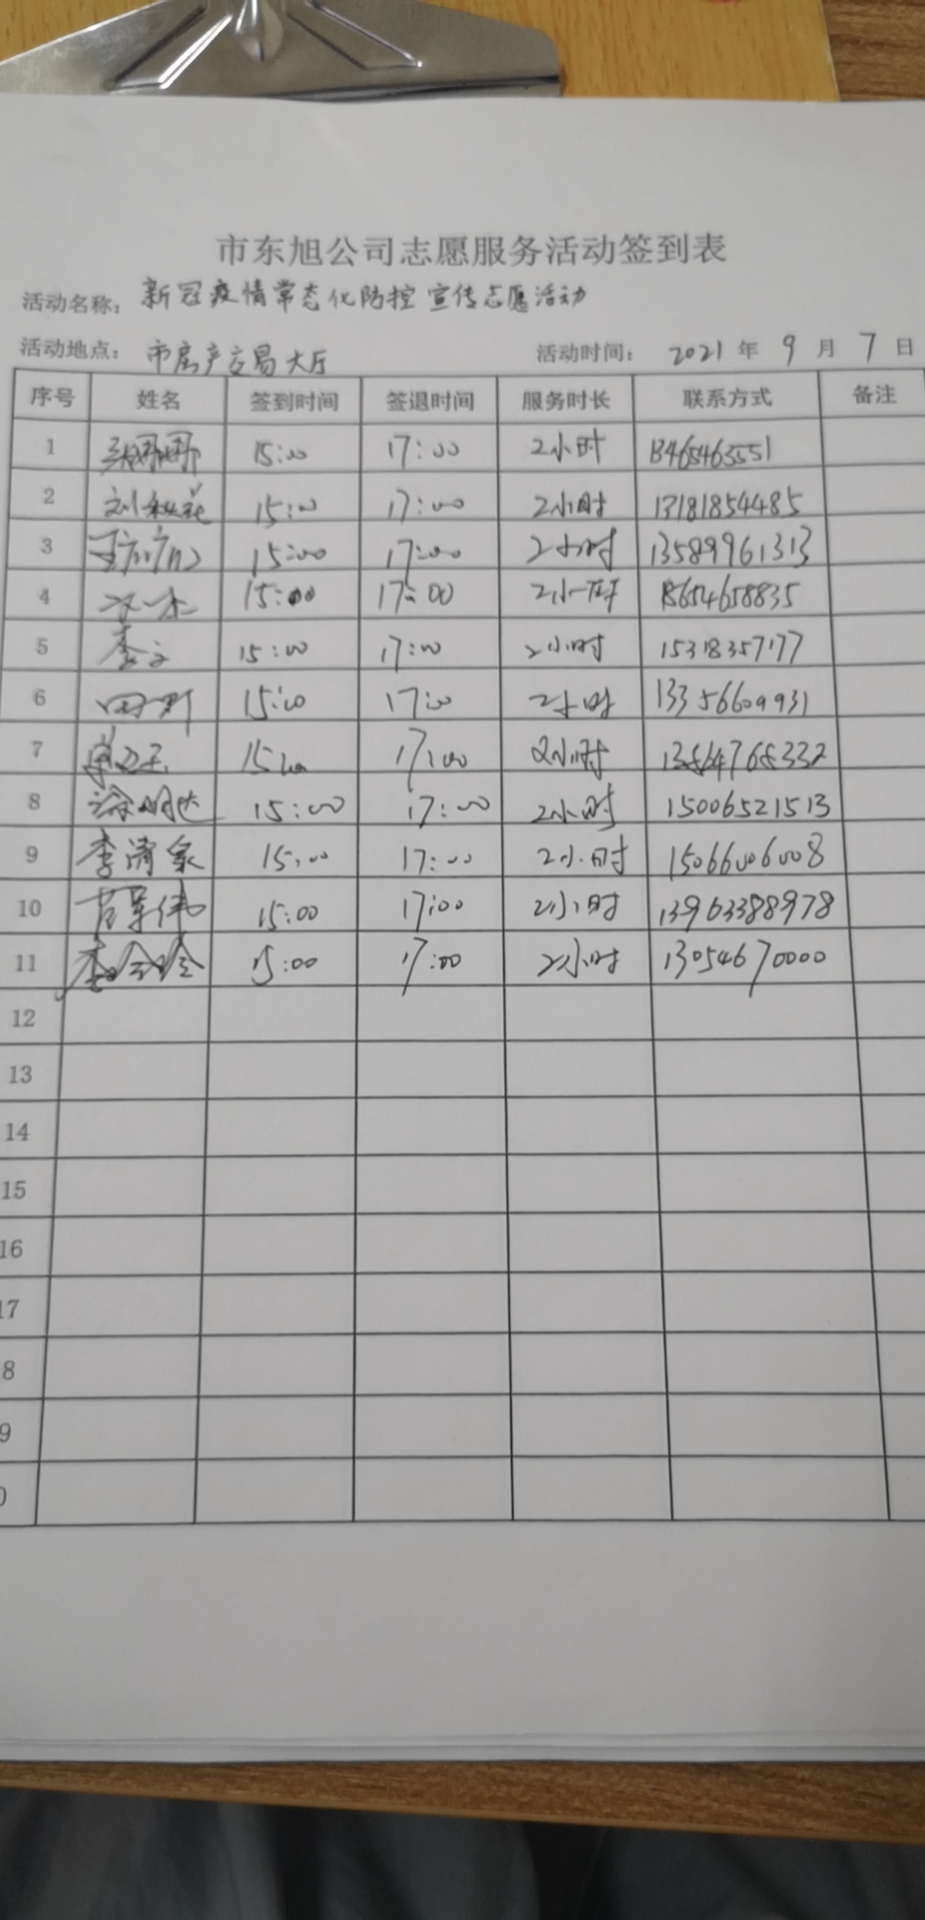 市东旭公司志愿服务活动签到表
活动名称： 新冠疫情常态化防控宣传志愿活动
活动地点： 市房产交易大厅 活动时间： 2021 年 9 月 7 日
序号 姓名 签到时间 签退时间 服务时长 联系方式 备注
1 15:00 17:00 2小时 13465463551
2 刘秋花 15:00 17:00 2小时 13181854485
3 15:00 17:00 2小时 13589961313
4 15:00 17:00 2小时 18654658835
5 李文 15:00 17:00 2小时 15318357177
6 15:00 17:00 2小时 13356609931
7 15:00 17:00 2小时
8 徐明达 15:00 17:00 2小时 15006521513
9 李清泉 15:00 17:00 2小时 15066006008
10 15:00 17:00 2小时 13963388978
11 15:00 17:00 2小时 13054670000
12
13
14
15
16
17
8
9
0